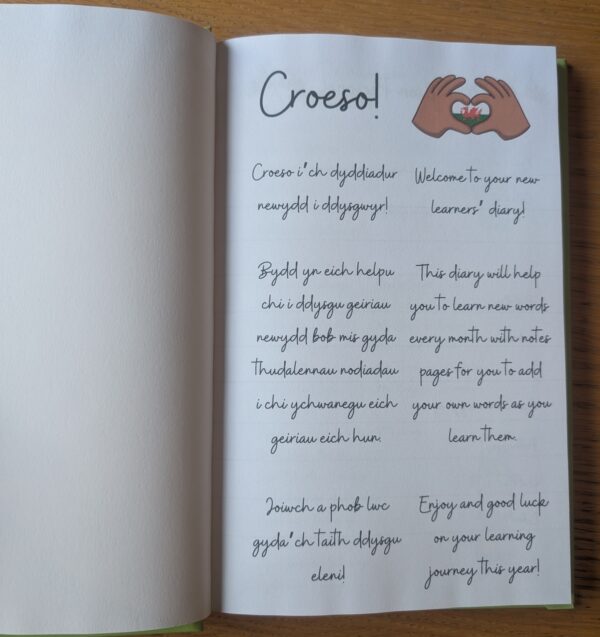 Croeso!
Croeso i'ch dyddiadur
newydd i ddysgwyr!
Bydd yn eich helpu
chi i ddysgu geiriau
newydd bob mis gyda
thudalennau nodiadau
i chi ychwanegu eich
geiriau eich hun.
Joiwch a phob lwc
gyda'ch taith ddysgu
eleni!
Welcome to your new
learners' diary!
This diary will help
you to learn new words
every month with notes
pages for you to add
your own words as you
learn them.
Enjoy and good luck
on your learning
journey this year!